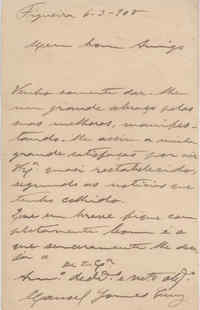 Figueira 6-3-908
Meu bom Amigo
Venho somente dar-lhe
um grande abraço pelas
suas melhoras, manifes-
tando-lhe assim a minha
grande satisfação por vêr
V. Ex.ª quasi restabelecido,
segundo as noticias que
tenho colhido.
Que em breve fique com-
pletamente bom é o
que sinceramente lhe de-
seja o
De V. Ex.ª
Am.º ded.º e m.to obg.º
Manoel Gomes